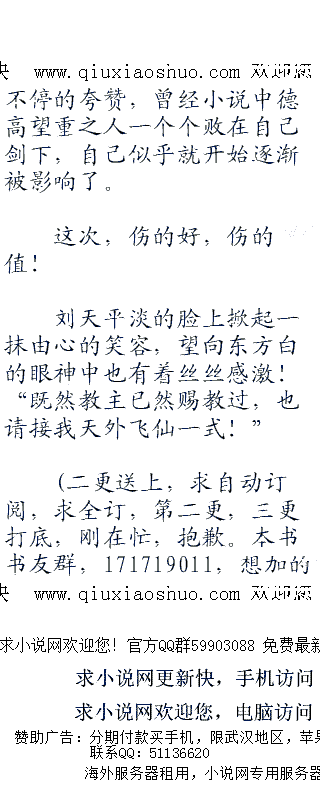 快 www.qiuxiaoshuo.com 欢迎您
不停的夸赞，曾经小说中德
高望重之人一个个败在自己
剑下，自己似乎就开始逐渐
被影响了。
这次，伤的好，伤的
值！
刘天平淡的脸上掀起一
抹由心的笑容，望向东方白
的眼神中也有着丝丝感激！
“既然教主已然赐教过，也
请接我天外飞仙一式！”
(二更送上，求自动订
阅，求全订，第二更，三更
打底，刚在忙，抱歉。本书
书友群，171719011，想加的
快 www.qiuxiaoshuo.com 欢迎您
求小说网欢迎您！官方QQ群59903088 免费最新
求小说网更新快，手机访问
求小说网欢迎您，电脑访问
赞助广告：分期付款买手机，限武汉地区，苹果
联系QQ：51136620
海外服务器租用，小说网专用服务器